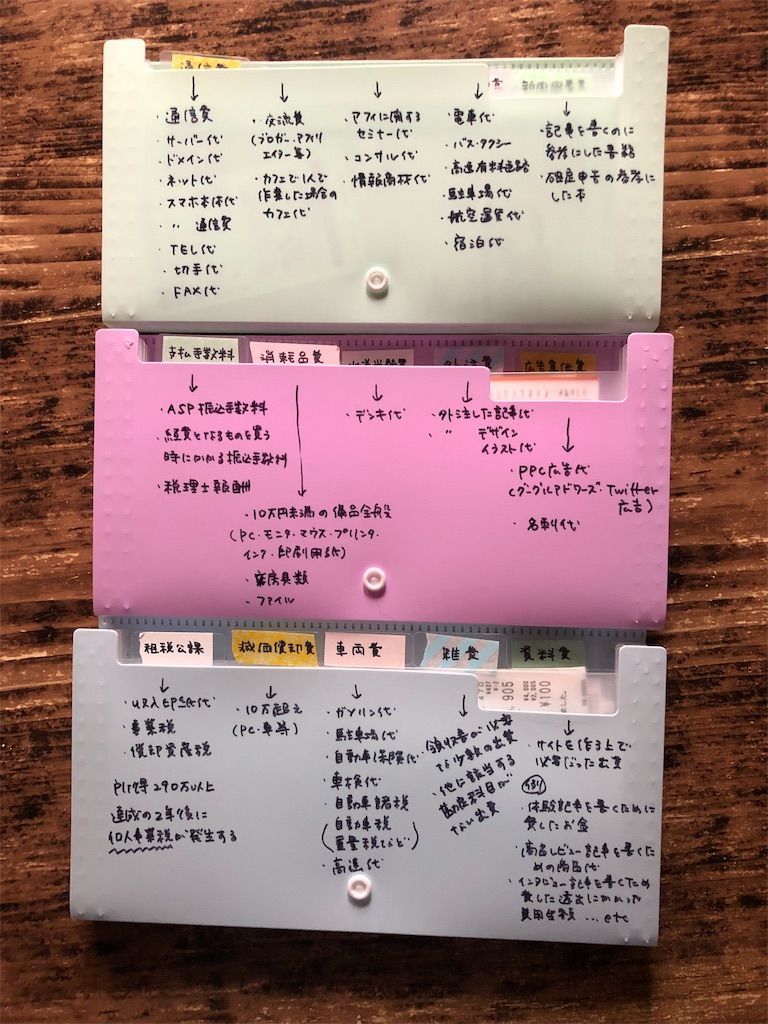 通信費
新聞図書費
・通信費
サーバー代
・ドメイン代
・ネット代
・スマホ本体代
・〃 通信費
・TEL代
・切手代
・FAX代
・交流費
(ブロガー、アフィリ
エイター等)
・カフェで1人で
作業した場合の
カフェ代
・アフィに関する
セミナー代
・コンサル代
・情報商材代
・電車代
・バス・タクシー
・高速有料道路
・駐車場代
・航空運賃代
・宿泊代
・記事を書くのに
参考にした書籍
・確定申告の参考に
した本
支払手数料
消耗品費
水道光熱費
外注費
広告宣伝費
・ASP振込手数料
・経費となるものを買う
時にかかる振込手数料
・税理士報酬
・10万円未満の備品全般
(PC・モニタ・マウス・プリンタ・
インク・印刷用紙)
・文房具類
・ファイル
・デンキ代
・外注した記事代
・〃 デザイン
イラスト代
・PPC広告代
(グーグルアドワーズ・Twitter
広告)
・名刺代
租税公課
減価償却費
車両費
雑費
資料費
・収入印紙代
・事業税
・償却資産税
所得290万以上
達成の2年後に
個人事業税が発生する
・10万超え
(PC・車等)
・ガソリン代
・駐車場代
・自動車保険代
・車検代
・自動車諸税
(自動車税
重量税など)
・高速代
・領収書が必要
な少数の出費
・他に該当する
勘定科目が
ない出費
905
¥4,000
¥2,005
¥100
・サイトを作る上で
必要だった出費
例
・体験記事を書くために
費したお金
・商品レビュー記事を書くた
めの商品代
・インタビュー記事を書くため
費した過去にかかった
費用全額 …etc